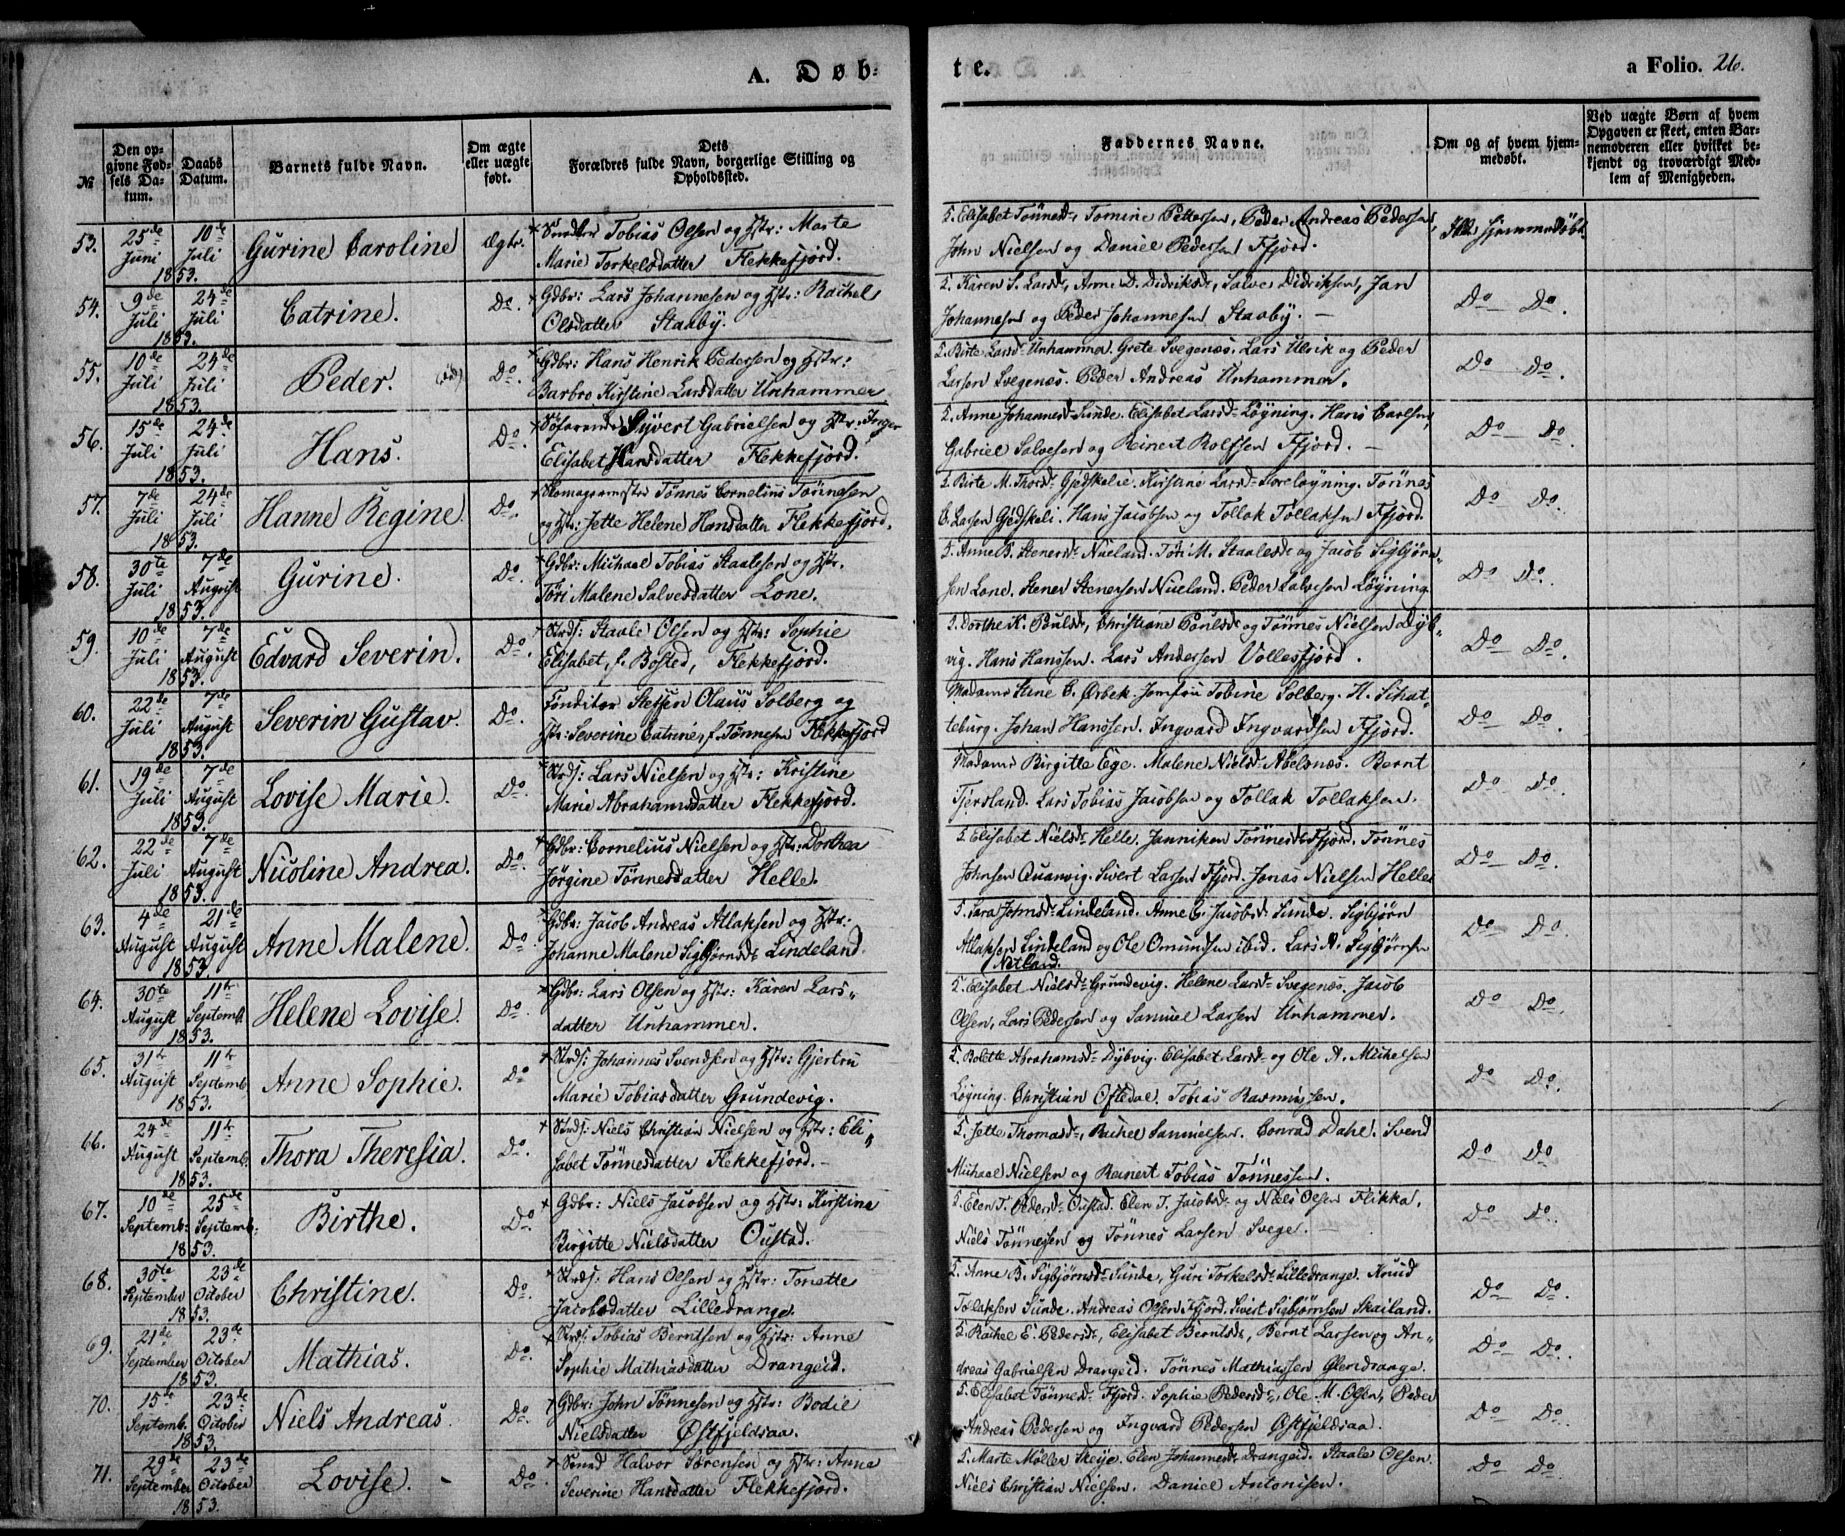 A. Døb-
te.
a Folio. 26.
№
Den op-
givne Fød-
sels Da-
tum.
Daabs
Datum.
Barnets fulde Navn.
Om ægte
eller uægte
født.
Dets
Forældres fulde Navn, borgerlige Stilling og
Opholdssted.
Faddernes Navne.
Om og af hvem hjem-
medøbt.
Ved uægte Børn af hvem
Opgaven er skeet, enten Bar-
nemoderen eller hvilket be-
kjendt og troværdigt Med-
lem af Menigheden.
53. 25de Juni 10de Juli 1853. Gurine Caroline Ægte. Tobias Olsen og Hstr: Marte
Marie Torkelsdatter Flekkefjord.
5. Elisabet Tønnesd., Tomine Pettersen, Peder Andreas Pedersen,
John Nielsen og Daniel Pedersen Ffjord.
Ikke hjemmedøbt
54. 9de Juli 24de Juli 1853. Catrine. Do. Gdbr: Lars Johannesen og Hstr: Rachel
Olsdatter Staaby.
5. Karen S. Larsd., Anne D. Didriksd., Salve Didriksen, Jan
Johannesen og Peder Johannesen Staaby. —
Do — Do.
55. 10de Juli 24de Juli 1853. Peder. Do. Gdbr: Hans Henrik Pedersen og Hstr:
Barbro Kirstine Larsdatter Unhammer
5. Birte Larsd. Unhammer. Grete Svegenæs. Lars Ulrik og Peder
Larsen Svegenæs. Peder Andreas Unhammer.
Do — Do.
56. 15de Juli 24de Juli 1853. Hans. Do. Søfarende Syvert Gabrielsen og Hstr: Inger
Elisabet Hansdatter Flekkefjord.
5. Anne Johannesd. Sunde. Elisabet Larsd. Løyning. Hans Carlsen,
Gabriel Salvesen og Reinert Rolfsen Ffjord. —
Do — Do.
57. 7de Juli 24de Juli 1853. Hanne Regine. Do. Skomagermester Tønnes Cornelius Tønnesen
og Hstr: Jette Helene Hansdatter Flekkefjord.
5. Birte M. Thorsd. Gjedskelie. Kirstine Larsd. Storeløyning. Tønnes
C. Larsen Gjedskeli. Hans Jacobsen og Tollak Tollaksen Ffjord.
Do — Do.
58. 30te Juli 7de August 1853. Gurine. Do. Gdbr: Michael Tobias Staalesen og Hstr.
Tori Malene Salvesdatter Lone.
5. Anne B. Stenersd. Nueland. Tori M. Staalesd. og Jacob Sigbjørn„
sen Lone. Stener Stenersen Nueland. Peder Salvesen Løyning.
Do Do.
59. 10de Juli 7de August 1853. Edvard Severin. Do. Strds: Staale Olsen og Hstr: Sophie
Elisabet, f. Bosted, Flekkefjord.
5. Dorthe K. Poulsd., Christiane Poulsd. og Tønnes Nielsen Dyb„
vig. Hans Hanssen. Lars Andersen Vollesfjord.
Do — Do.
60. 22de Juli 7de August 1853. Severin Gustav. Do. Conditor Steffen Olaus Solberg og
Hstr: Severine Catrine, f. Tønnesen Flekkefjord
Madame Stine C. Ørbek. Jomfru Tobine Solberg. H. Schat„
teburg. Johan Hanssen. Ingvard Ingvardsen Ffjord.
Do — Do.
61. 19de Juli 7de August 1853. Lovise Marie. Do. Strds: Lars Nielsen og Hstr: Kristine
Marie Abrahamsdatter Flekkefjord.
Madame Birgitte Ege. Malene Nielsd. Abelsnæs. Bernt
Tjersland. Lars Tobias Jacobsen og Tollak Tollaksen.
Do — Do.
62. 22de Juli 7de August 1853. Nicoline Andrea. Do. Gdbr: Cornelius Nielsen og Hstr: Dorthea
Jørgine Tønnesdatter Helle.
5. Elisabet Nielsd. Helle. Janniken Tønnesd. Ffjord. Tønnes
Johnsen Quanvig. Sivert Larsen Ffjord. Jonas Nielsen Helle
Do — Do.
63. 4de August 21de August 1853 Anne Malene. Do. Gdbr: Jacob Andreas Atlaksen og Hstr:
Johanne Malene Sigbjørnsd. Lindeland.
5. Sara Johnsd. Lindeland. Anne G. Jacobsd. Sunde. Sigbjørn
Atlaksen Lindeland og Ole Omundsen ibid. Lars A. Sigbjørnsen
Netland.
Do Do.
64. 30te August 11te Septemb. 1853. Helene Lovise. Do. Gdbr: Lars Olsen og Hstr: Karen Lars„
datter Unhammer.
5. Elisabet Nielsd. Grundevig. Helene Larsd. Svegenæs. Jacob
Olsen, Lars Pedersen og Samuel Larsen Unhammer.
Do Do.
65. 31te August 11te Septemb. 1853. Anne Sophie. Do Strds: Johannes Svendsen og Hstr: Gjertru
Marie Tobiasdatter Grundevig.
5. Bolette Abrahamsd. Dybvig. Elisabet Larsd. og Ole A. Michelsen
Løyning. Christian Oftedal. Tobias Rasmussen.
Do Do.
66. 24de August 11te Septemb. 1853. Thora Theresia. Do. Strds: Niels Christian Nielsen og Hstr: Eli„
sabet Tønnesdatter Flekkefjord. —
5. Jette Thomasd., Rachel Samuelsen. Conrad Dahl. Svend
Michael Nielsen og Reinert Tobias Tønnessen.
Do Do
67. 10de Septemb: 25de Septemb: 1853. Birthe. Do. Gdbr: Niels Jacobsen og Hstr: Kirstine
Birgitte Nielsdatter Oustad.
5. Elen T. Pedersd. Oustad. Elen T. Jacobsd. og Niels Olsen Flikka.
Niels Tønnesen og Tønnes Larsen Svege.
Do Do.
68. 30te September 23de October 1853. Christine. Do. Strds: Hans Olsen og Hstr: Tonette
Jacobsdatter Lilledrange.
5. Anne B. Sigbjørnsd. Sunde, Guri Torkelsd. Lilledrange. Knud
Tollaksen Sunde. Andreas Olsen Ffjord. Sivert Sigbjørnsen Skailand.
Do Do.
69. 21de September 23de October 1853. Mathias. Do. Strds: Tobias Berntsen og Hstr: Anne
Sophie Mathiasdatter Drangeid.
5. Rachel E. Pedersd., Elisabet Berntsd., Bernt Larsen og An„
dreas Gabrielsen Drangeid. Tønnes Mathiassen Glendrange.
Do Do.
70. 15de Septemb. 23de October 1853. Niels Andreas. Do. Gdbr: John Tønnesen og Hstr: Bodil
Nielsdatter Østfjeldsaa.
5. Elisabet Tønnesd. Ffjord. Sophie Pedersd., Ole M. Olsen, Peder
Andreas Pedersen og Ingvard Pedersen Østfjeldsaa.
Do Do.
71. 29de September 23de October 1853. Lovise. Do. Smed Halvor Sørensen og Hstr: Anne
Severine Hansdatter Flekkefjord.
5. Marte Møller Skeije. Elen Johannesd. Drangeid. Staale Olsen.
Niels Christian Nielsen. Daniel Antonisen.
Do Do.